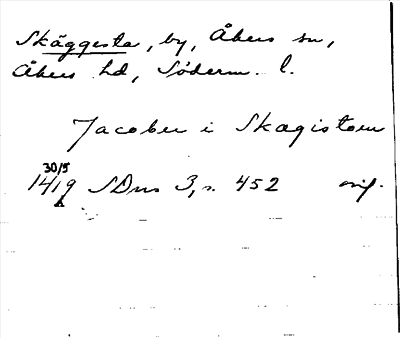 Skäggesta, by, Åkers sn,
Åkers hd, Söderm. l.
Jacober i Skagistom
30/5
1419 SDns 3, s. 452 orig.
A